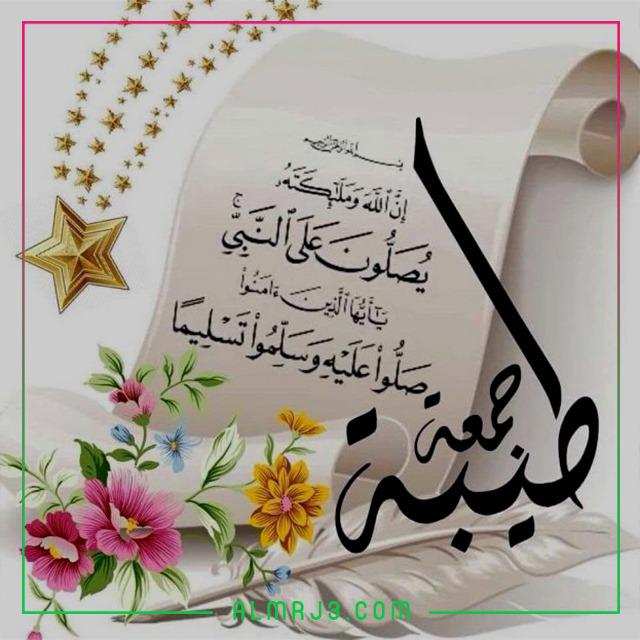 بسم الله الرحمن الرحيم
إِنَّ ٱللَّهَ وَمَلَٰٓئِكَتَهُۥ
يُصَلُّونَ عَلَى ٱلنَّبِيِّۚ
يَٰٓأَيُّهَا ٱلَّذِينَ ءَامَنُوا۟
صَلُّوا۟ عَلَيْهِ وَسَلِّمُوا۟ تَسْلِيمًا
جمعة
طيبة
ALMRJ3.COM